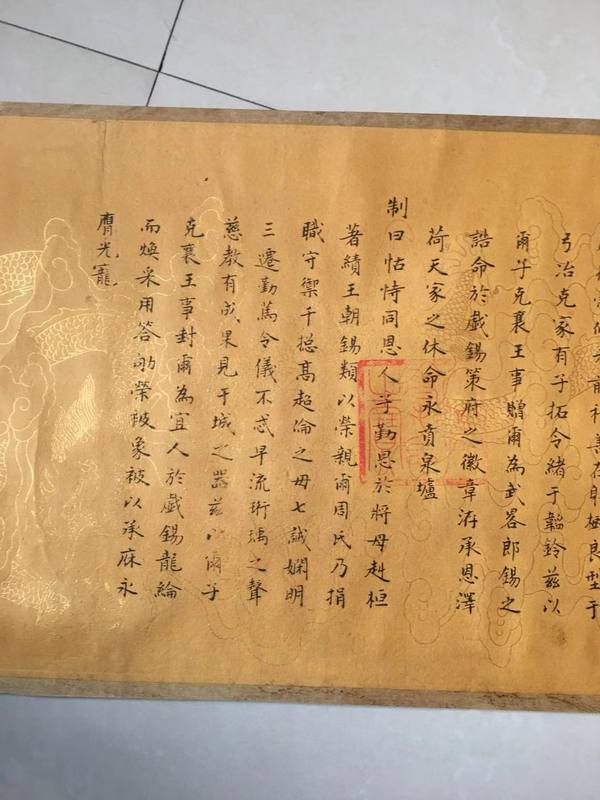 弓冶克家有子拓令緒于韜鈐茲以
爾子克襄王事贈爾為武畧郎錫之
誥命於戲錫策府之徽章洊承恩澤
荷天家之休命永賁泉壚
制曰怙恃同恩人子勤思於將母赳桓
著績王朝錫類以榮親爾周氏乃捐
職守禦千揔高超倫之母七誡嫻明
三遷勤篤令儀不忒早流珩瑀之聲
慈教有成果見干城之器茲以爾子
克襄王事封爾為宜人於戲錫龍綸
而煥采用答劬榮被象被以承庥永
膺光寵